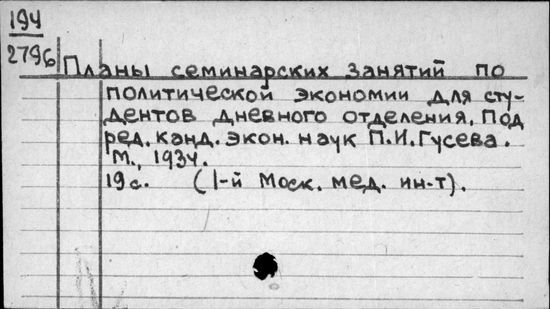 194
2796
Планы семинарских занятий по
политической экономии для сту-
дентов дневного отделения. Под
ред. канд. экон. наук П.И.Гусева.
М., 1934.
19 с. (1-й Моск. мед. ин-т).